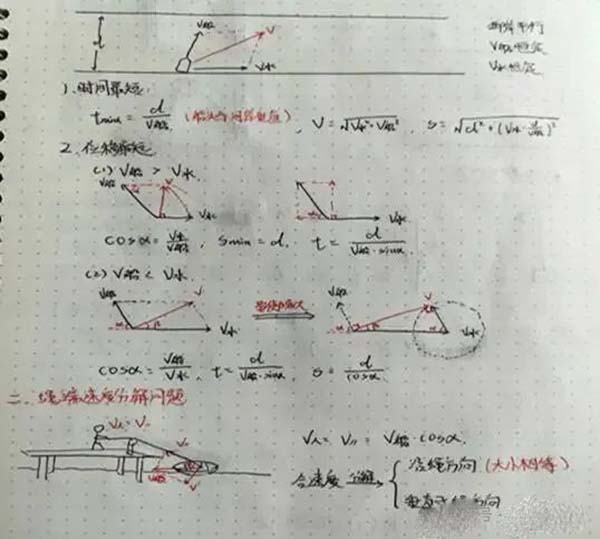 d V船 V V水 两岸平行
V船恒定
V水恒定
1. 时间最短:
tmin = d/V船 (船头与河岸垂直), V = √V水²+V船², s = √d²+(V水·d/V船)²
2. 位移最短
(1) V船 > V水
V船 V V水 V水
cosα = V水/V船, smin = d, t = d/V船·sinα
(2) V船 < V水
V船 V α β V水 V船 V α β V水
cosα = V船/V水, t = d/V船·sinα, s = d/cosα
二、绳端速度分解问题
V人 = V∥
V人 = V∥ = V船·cosα
合速度 分解 { 沿绳方向 (大小相等)
垂直于绳方向